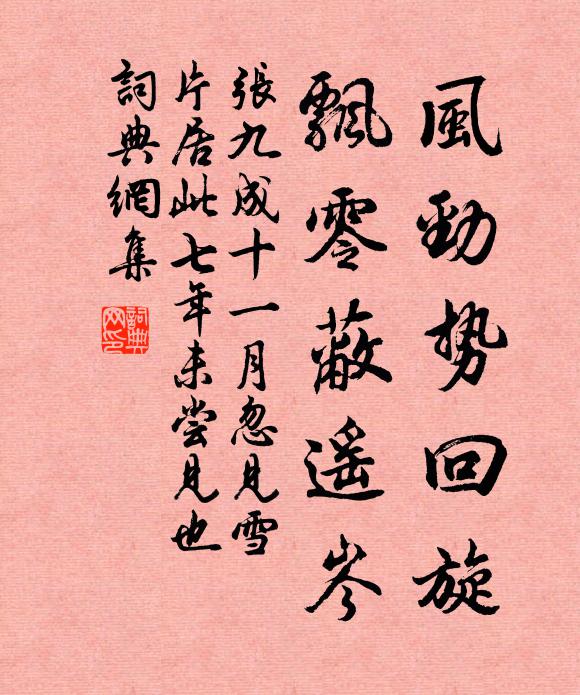 風勁勢回旋
飄零蔽遥岑
張九成十一月忽見雪
片居此七年未尝見也
詞典網集
詞典网印